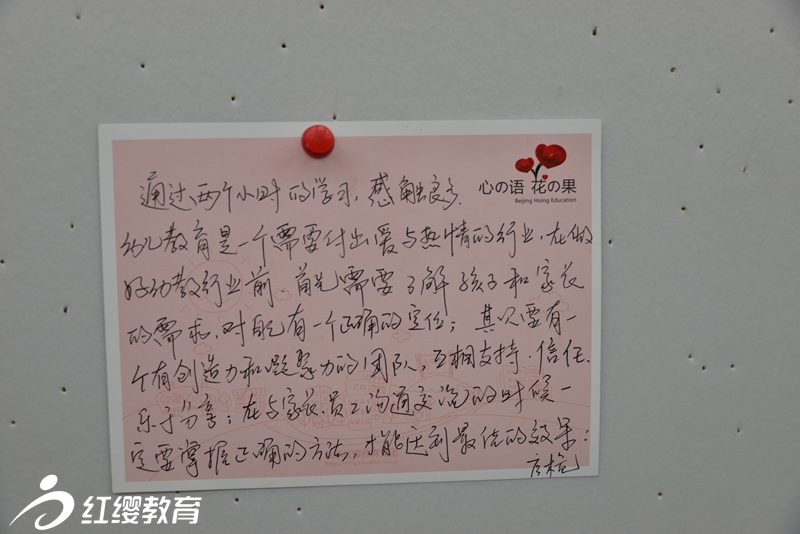 心の语 花の果
Beijing Hoing Education
通过两个小时的学习，感触良多.
幼儿教育是一个需要付出爱与热情的行业，在做
好幼教行业前，首先需要了解孩子和家长
的需求，对自己有一个正确的定位；其次要有一
个有创造力和凝聚力的团队，互相支持、信任、
乐于分享；在与家长、员工沟通交流的时候一
定要掌握正确的方法，才能达到最佳的效果；
红缨教育